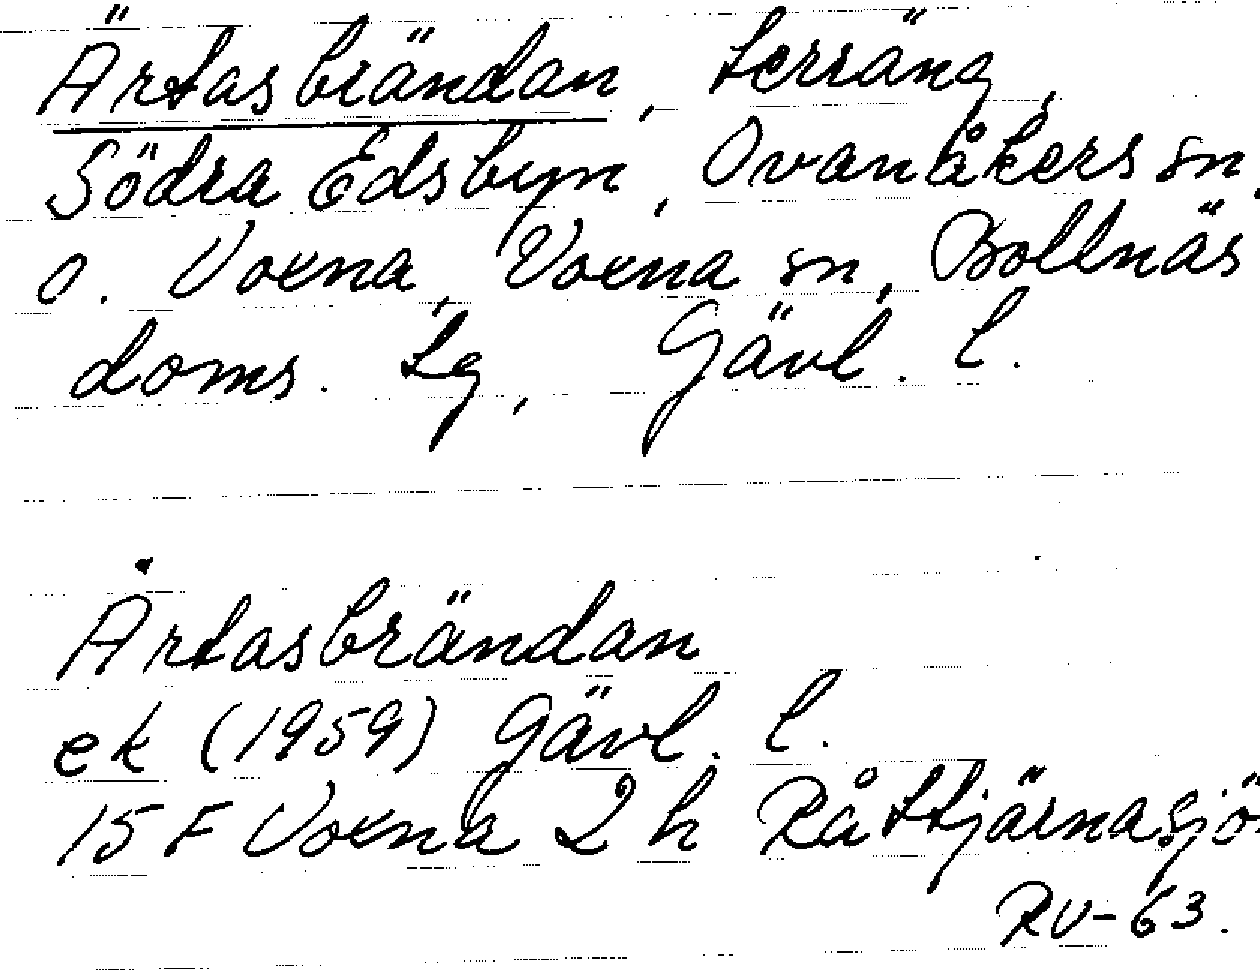 Ärtasbrändan, terräng,
Södra Edsbyn, Ovanåkers sn,
o. Voxna, Voxna sn, Bollnäs
doms. tg, Gävl. l.
Ärtasbrändan
ek (1959) Gävl. l.
15 F Voxna 2 h Råttjärnasjö
RV-63.